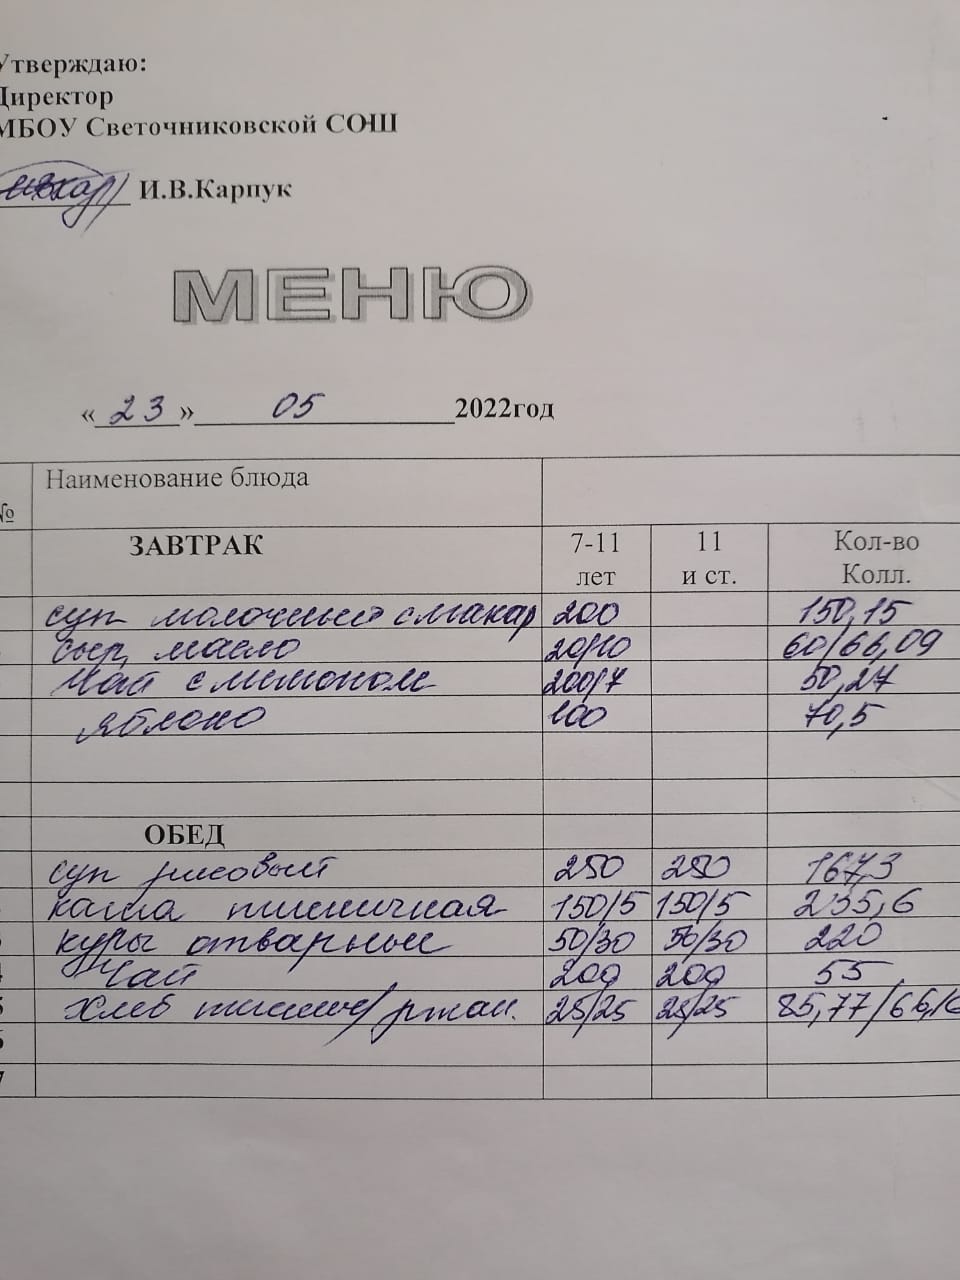 Утверждаю:
Директор
МБОУ Светочниковской СОШ
И.В.Карпук
МЕНЮ
« 23 » 05 2022год
№ Наименование блюда
ЗАВТРАК 7-11 лет 11 и ст. Кол-во Колл.
суп молочный с макар 200 150,15
сыр, масло 20/10 60/66,09
чай с лимоном 200/7 50,27
яблоко 100 70,5
ОБЕД
суп рисовый 250 250 167,3
каша пшеничная 150/5 150/5 235,6
куры отварные 50/30 50/30 220
4 Чай 200 200 55
5 хлеб пшенич/ржан. 25/25 25/25 85,77/66,16
6
7